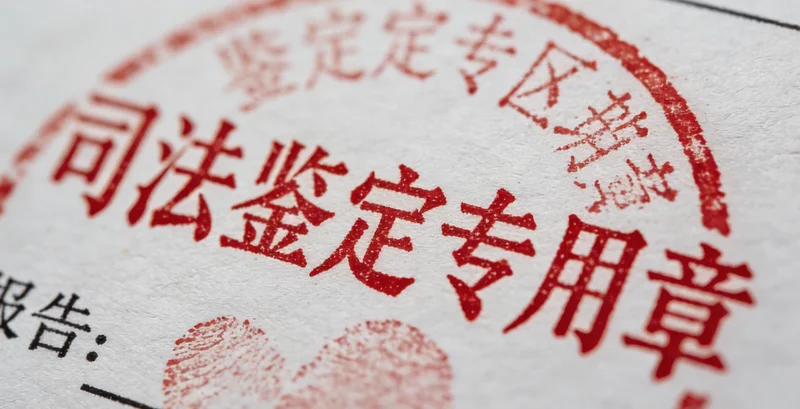 鉴定定专区
司法鉴定专用章
报告: